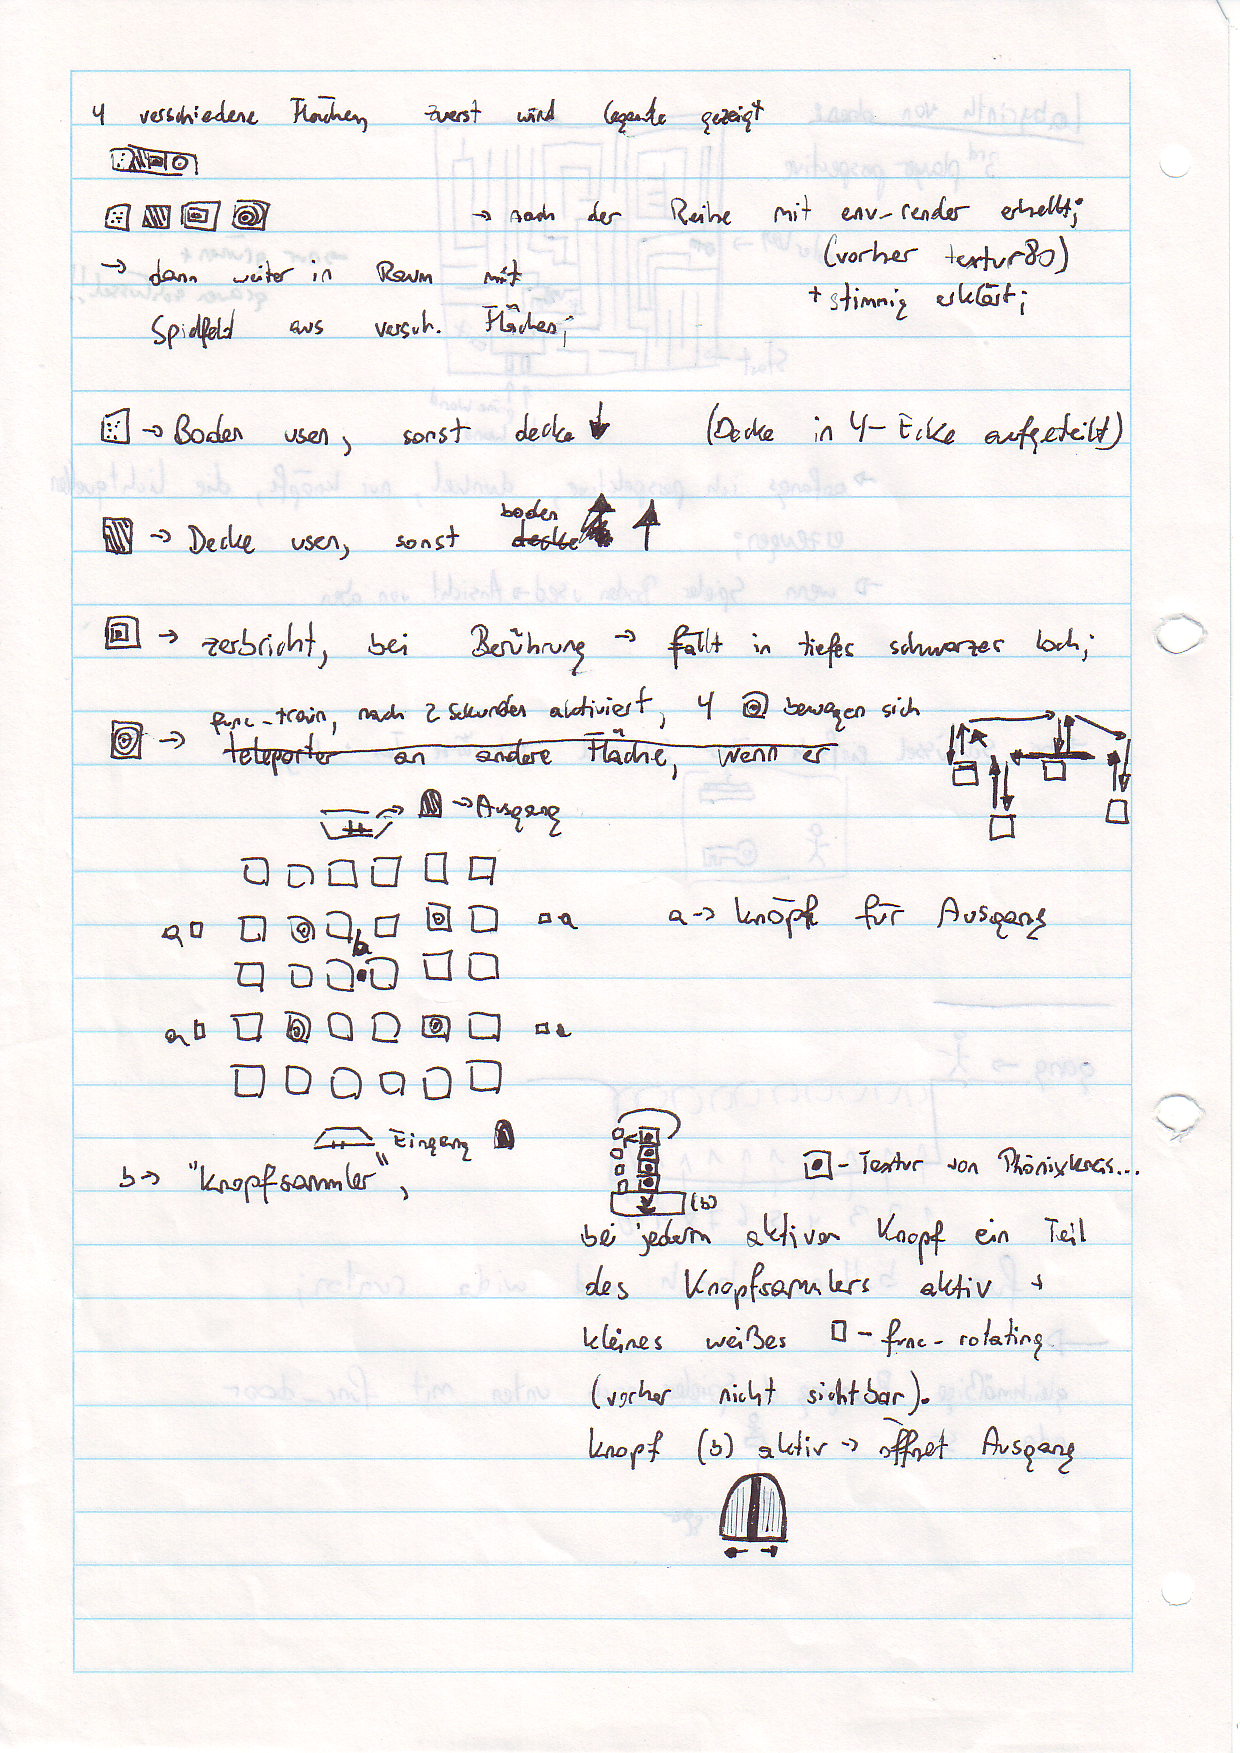 4 verschiedene Flächen, zuerst wird legende gezeigt
→ nach der Reihe mit env-render erhellt;
(vorher textur80)
→ dann weiter in Raum mit
+ stimmig erklärt;
Spielfeld aus versch. Flächen;
→ Boden usen, sonst decke ↓ (Decke in 4-Ecke aufgeteilt)
boden
→ Decke usen, sonst decke ↑
→ zerbricht, bei Berührung → fällt in tiefes schwarzes loch;
func-train, nach 2 Sekunden aktiviert, 4 bewegen sich
→ teleporter an andere Fläche, wenn er
→ Ausgang
a a
a → Knöpfe für Ausgang
b
a a
Eingang
b → "Knopfsammler",
- Textur von Phönixkreis...
(b)
bei jedem aktiven Knopf ein Teil
des Knopfsammlers aktiv +
kleines weißes □ - func-rotating
(vorher nicht sichtbar).
Knopf (b) aktiv → öffnet Ausgang